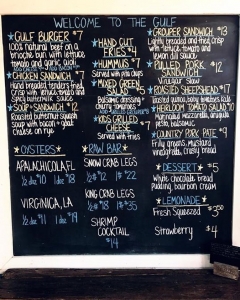 WELCOME TO THE GULF
GULF BURGER $7
100% natural beef on a
brioche bun with lettuce,
tomato and garlic aioli
CHICKEN SANDWICH $7
Hand breaded tenders fried,
crisp with lettuce, tomato and
spicy buttermilk sauce
SOUP & SANDWICH $12
Roasted butternut squash
soup with bacon + goat
cheese, on rye
OYSTERS
APALACHICOLA, FL
½ doz $10 1 doz $18
VIRGINICA, LA
½ doz $11 1 doz $19
HAND CUT
FRIES $4
HUMMUS $7
Served with pita chips
MIXED GREEN
SALAD
Balsamic dressing
cherry tomatoes
KIDS GRILLED
CHEESE $7
Served with fries
RAW BAR
SNOW CRAB LEGS
½# $12 1# $22
KING CRAB LEGS
½# $18 1# $35
SHRIMP
COCKTAIL
$14
GROUPER SANDWICH $13
Lightly breaded and fried, crisp
with lettuce, tomato and
lemon dill sauce
PULLED PORK
SANDWICH $12
Vinegar Slaw
ROASTED SHEEPSHEAD $17
HEIRLOOM TOMATO $10
Marinated mozzarella, arugula,
pesto, balsamic
COUNTRY PORK PATE $9
Frily greens, mustard
vinaigrette, crusty bread
DESSERT $5
White chocolate bread
pudding, bourbon cream
LEMONADE
Fresh Squeezed $3.50
Strawberry $4